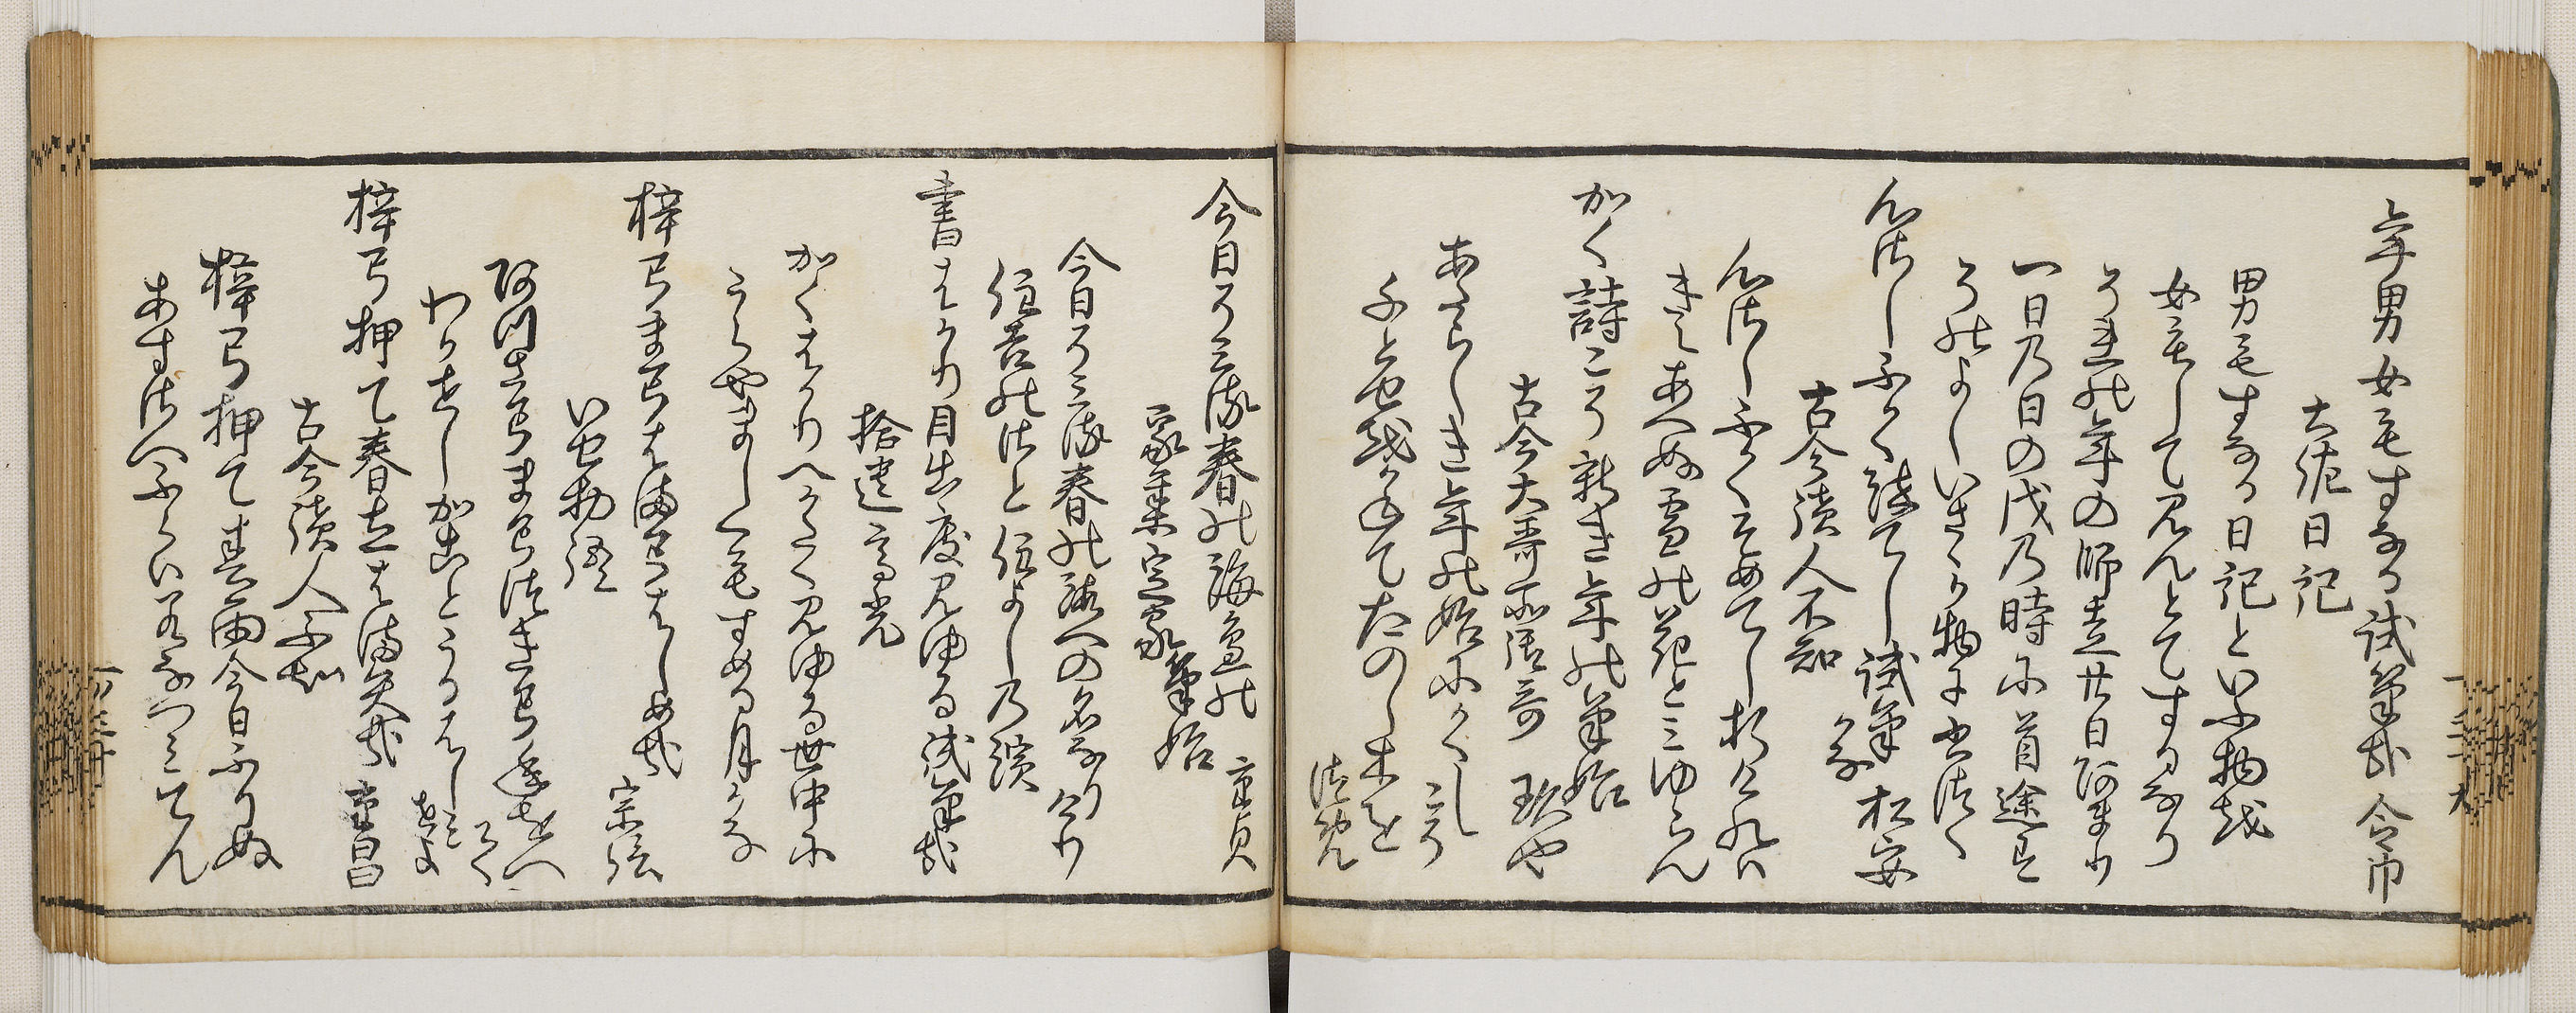 年男女もすなる試筆哉　令巾
土佐日記
男もすなる日記といふ物越
女もして見んとてするなり
それの年の師走廿日阿まり
一日乃日の戌乃時に首途す
そのよしいさゝか物に書つく
心ざしふかく染てし試筆かな　松安
古今読人不知
心ざしふかくそめてし折ければ
きえあへぬ雪の花とみゆらん
かく詩こそ新き年の筆始　政や
古今大哥所御哥
あたらしき年の始にかくしこそ
千とせ越かねてたのしきをつめ
今日そ三流春の海辺の筆始　宣貞
家集定家
今日そ三流春の海への名なりけり
住吉の浦と住よし乃濱
書そめり目出度見ゆる試筆哉
拾遺高光
かくはかりへかたく見ゆる世中に
うらやましくもすめる月かな
梓弓ま弓を満弓はしめ哉　宗信
いせ物語
阿川さ弓ま弓つき弓年をへて
わかせしかことうるはしみせよ
梓弓押て春立を満矢哉　重昌
古今読人不知
梓弓押て春雨今日ふりぬ
あすさへふらは若なつみてん